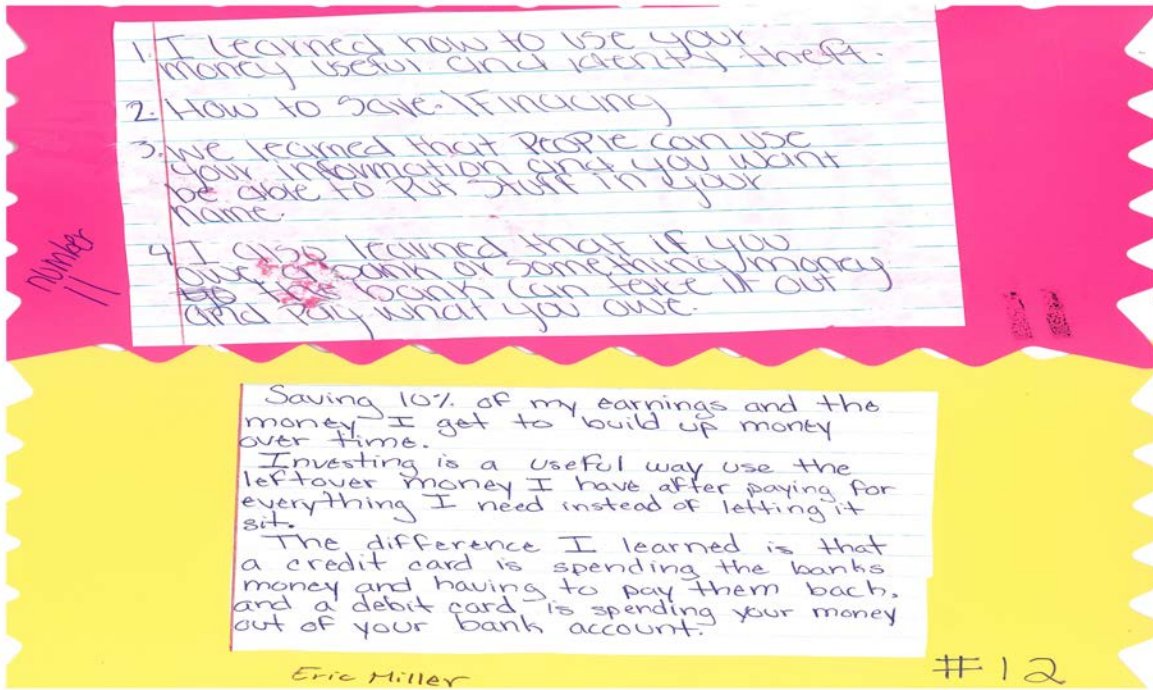 1. I learned how to use your
money useful and identy theft.
2. How to save. \Finacing
3. we learned that People can use
your information and you want
be able to Put stuff in your
name.
4. I also learned that if you
owe a bank or something/money
the bank can take it out
and Pay what you owe.
number
11
11
Saving 10% of my earnings and the
money I get to build up money
over time.
Investing is a useful way use the
leftover money I have after paying for
everything I need instead of letting it
sit.
The difference I learned is that
a credit card is spending the banks
money and having to pay them back,
and a debit card is spending your money
out of your bank account.
Eric Miller
#12